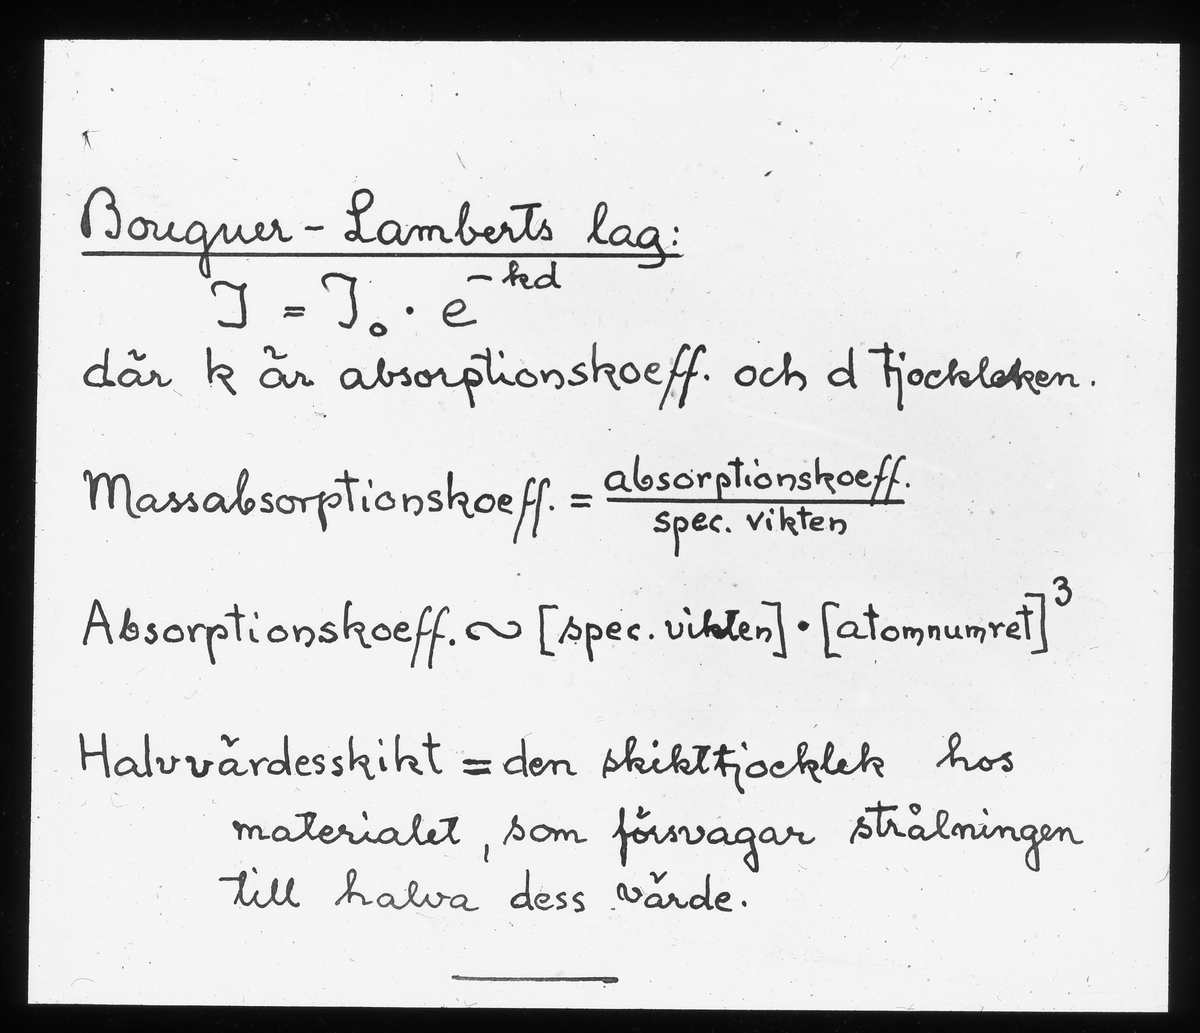 Bouguer - Lamberts lag:
J = J₀ · e⁻ᵏᵈ
där k är absorptionskoeff. och d tjockleken.
Massabsorptionskoeff. = absorptionskoeff. / spec. vikten
Absorptionskoeff. ∾ [spec. vikten] · [atomnumret]³
Halvvärdesskikt = den skikttjocklek hos
materialet, som försvagar strålningen
till halva dess värde.